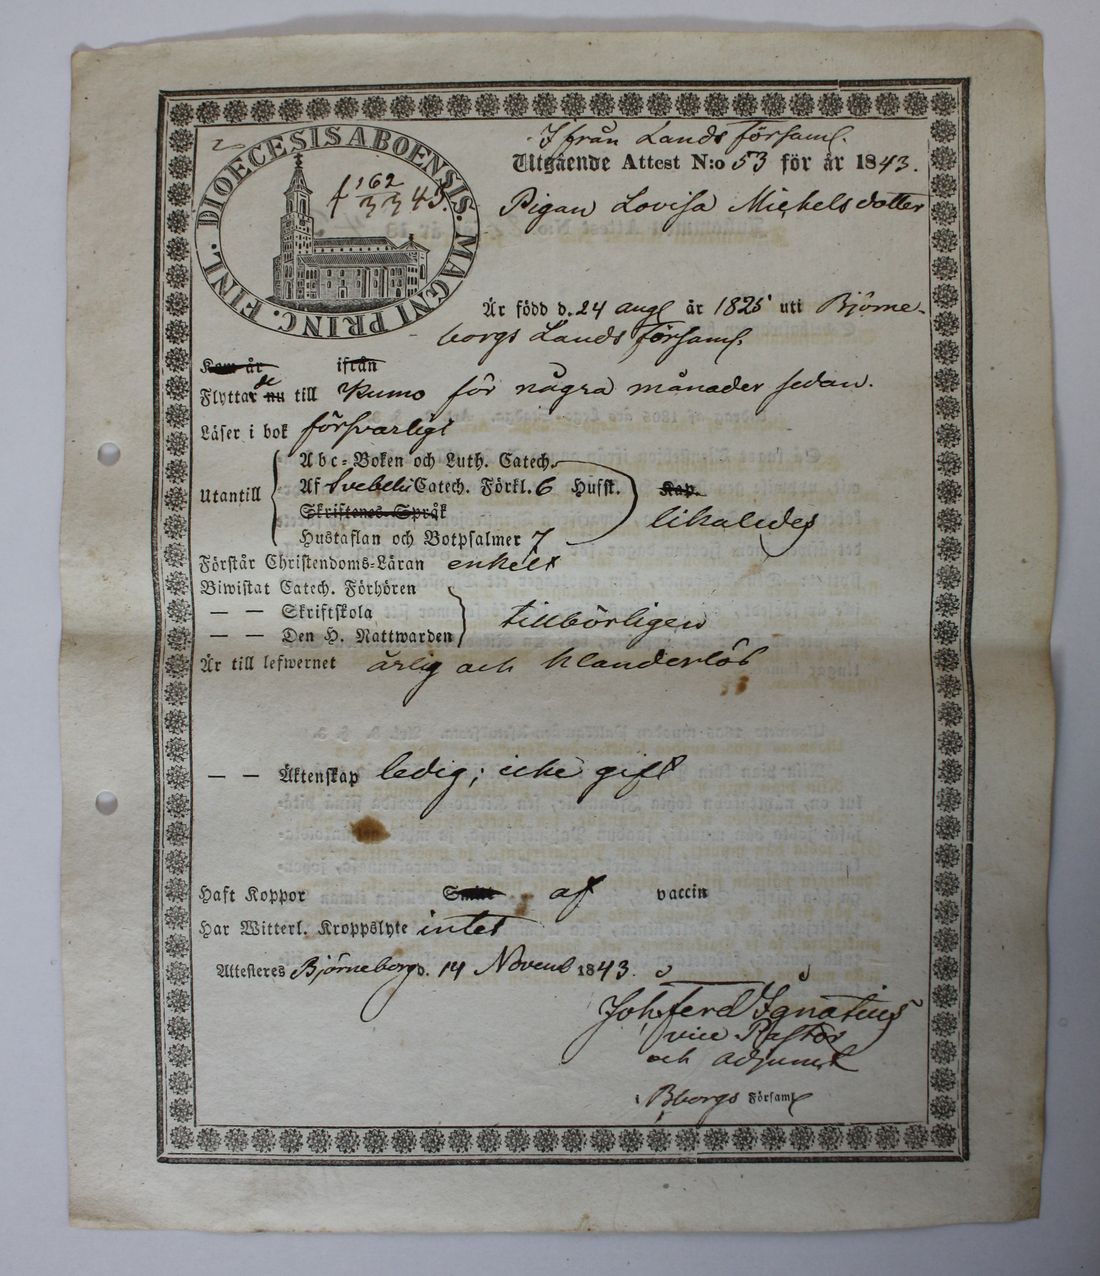 DIOECESIS ABOENSIS. MAGNI PRINC. FINL.
162
33 43.
Ifrån Lands församl.
Utgående Attest N:o 53 för år 1843.
Pigan Lovisa Michelsdotter
Är född d. 24 aug år 1825 uti Björne-
borgs Lands församl.
Kom år ifrån
Flyttar de nu till Kumo för några månader sedan.
Läser i bok försvarligt
Utantill
Abc-Boken och Luth. Catech.
Af Svebelii Catech. Förkl. 6 Hufst. Kap.
Skriftenes Språk likaledes
Hustaflan och Botpsalmer 7
Förstår Christendoms-Läran enkelt
Biwistat Catech. Förhören
— — Skriftskola
— — Den H. Nattwarden tillbörligen
Är till lefwernet ärlig och klanderlös
— — Äktenskap ledig; icke gift
Haft Koppor af vaccin
Har Witterl. Kroppslyte intet
Attesteres Björneborg d. 14 Novemb 1843.
Joh Ferd Ignatius
vice Pastor
och adjunct
i Bborgs Församl